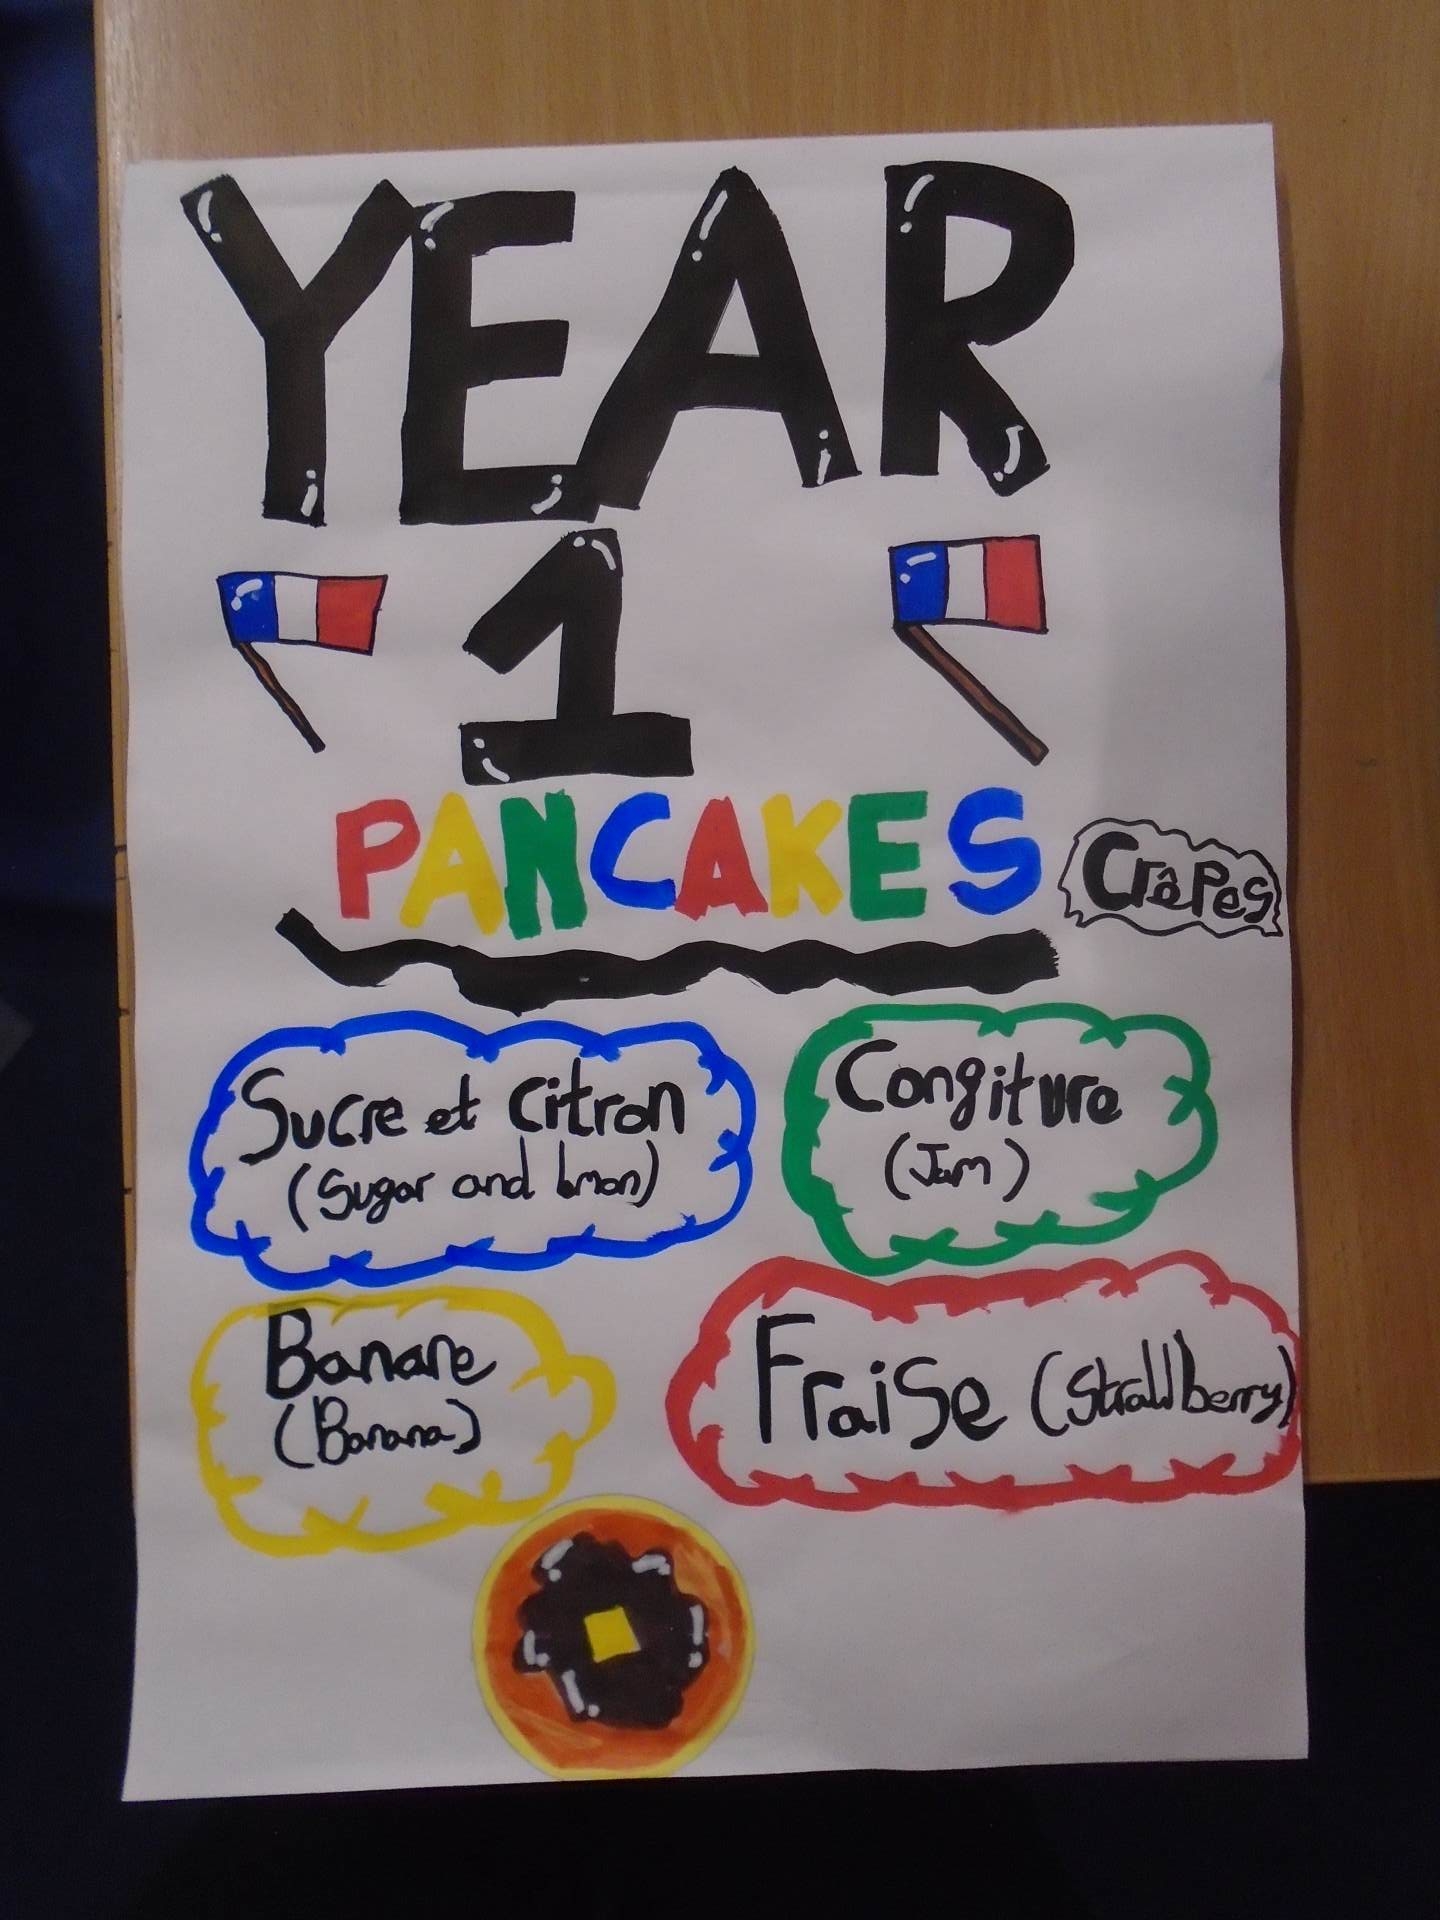 YEAR
1
PANCAKES
Crêpes
Sucre et citron
(Sugar and lemon)
Congiture
(Jam)
Banane
(Banana)
Fraise (Strawberry)